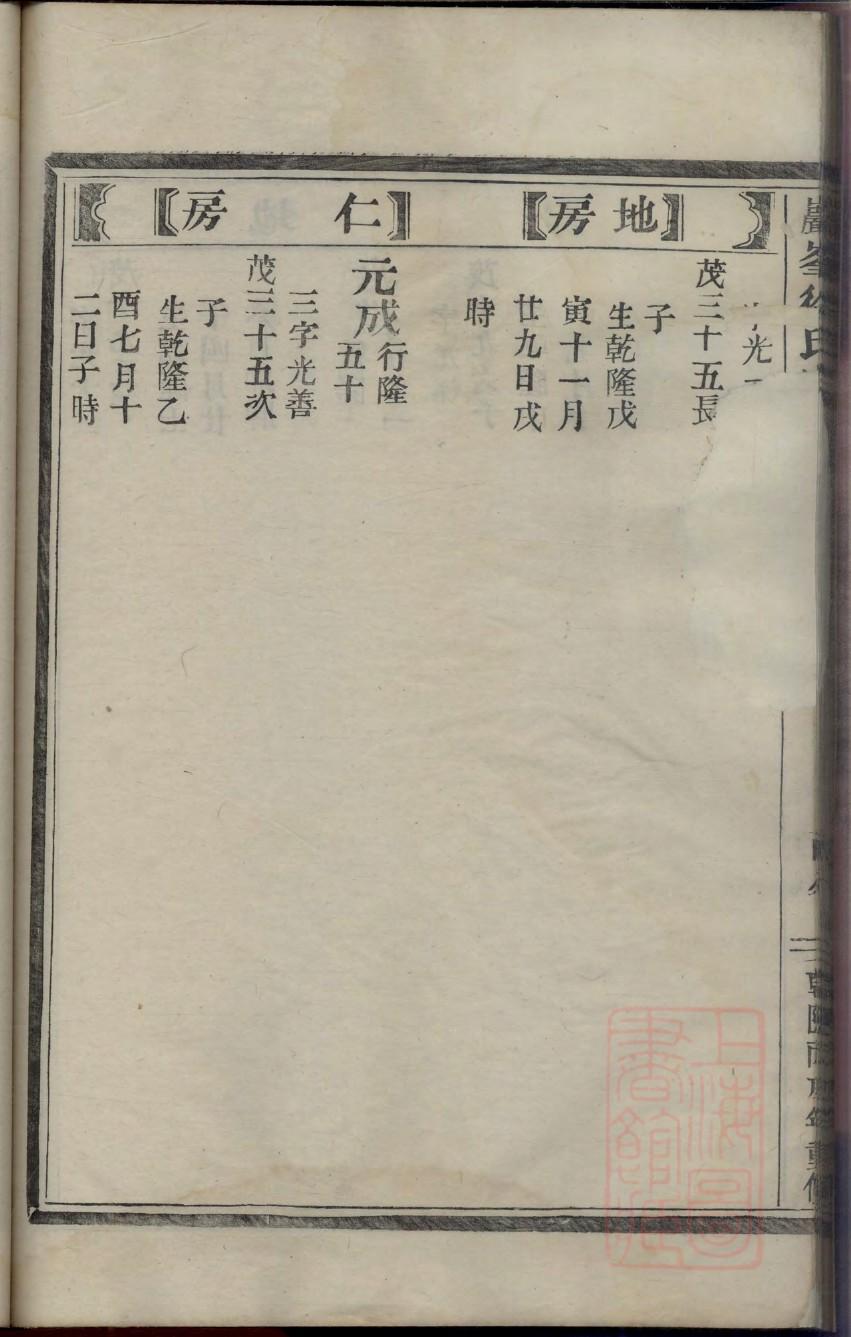 巖峯徐氏
地房
字光
茂三十五長
子
生乾隆戊
寅十一月
廿九日戌
時
仁房
元成行隆
五十
三字光善
茂三十五次
子
生乾隆乙
酉七月十
二日子時
上海圖
書館藏